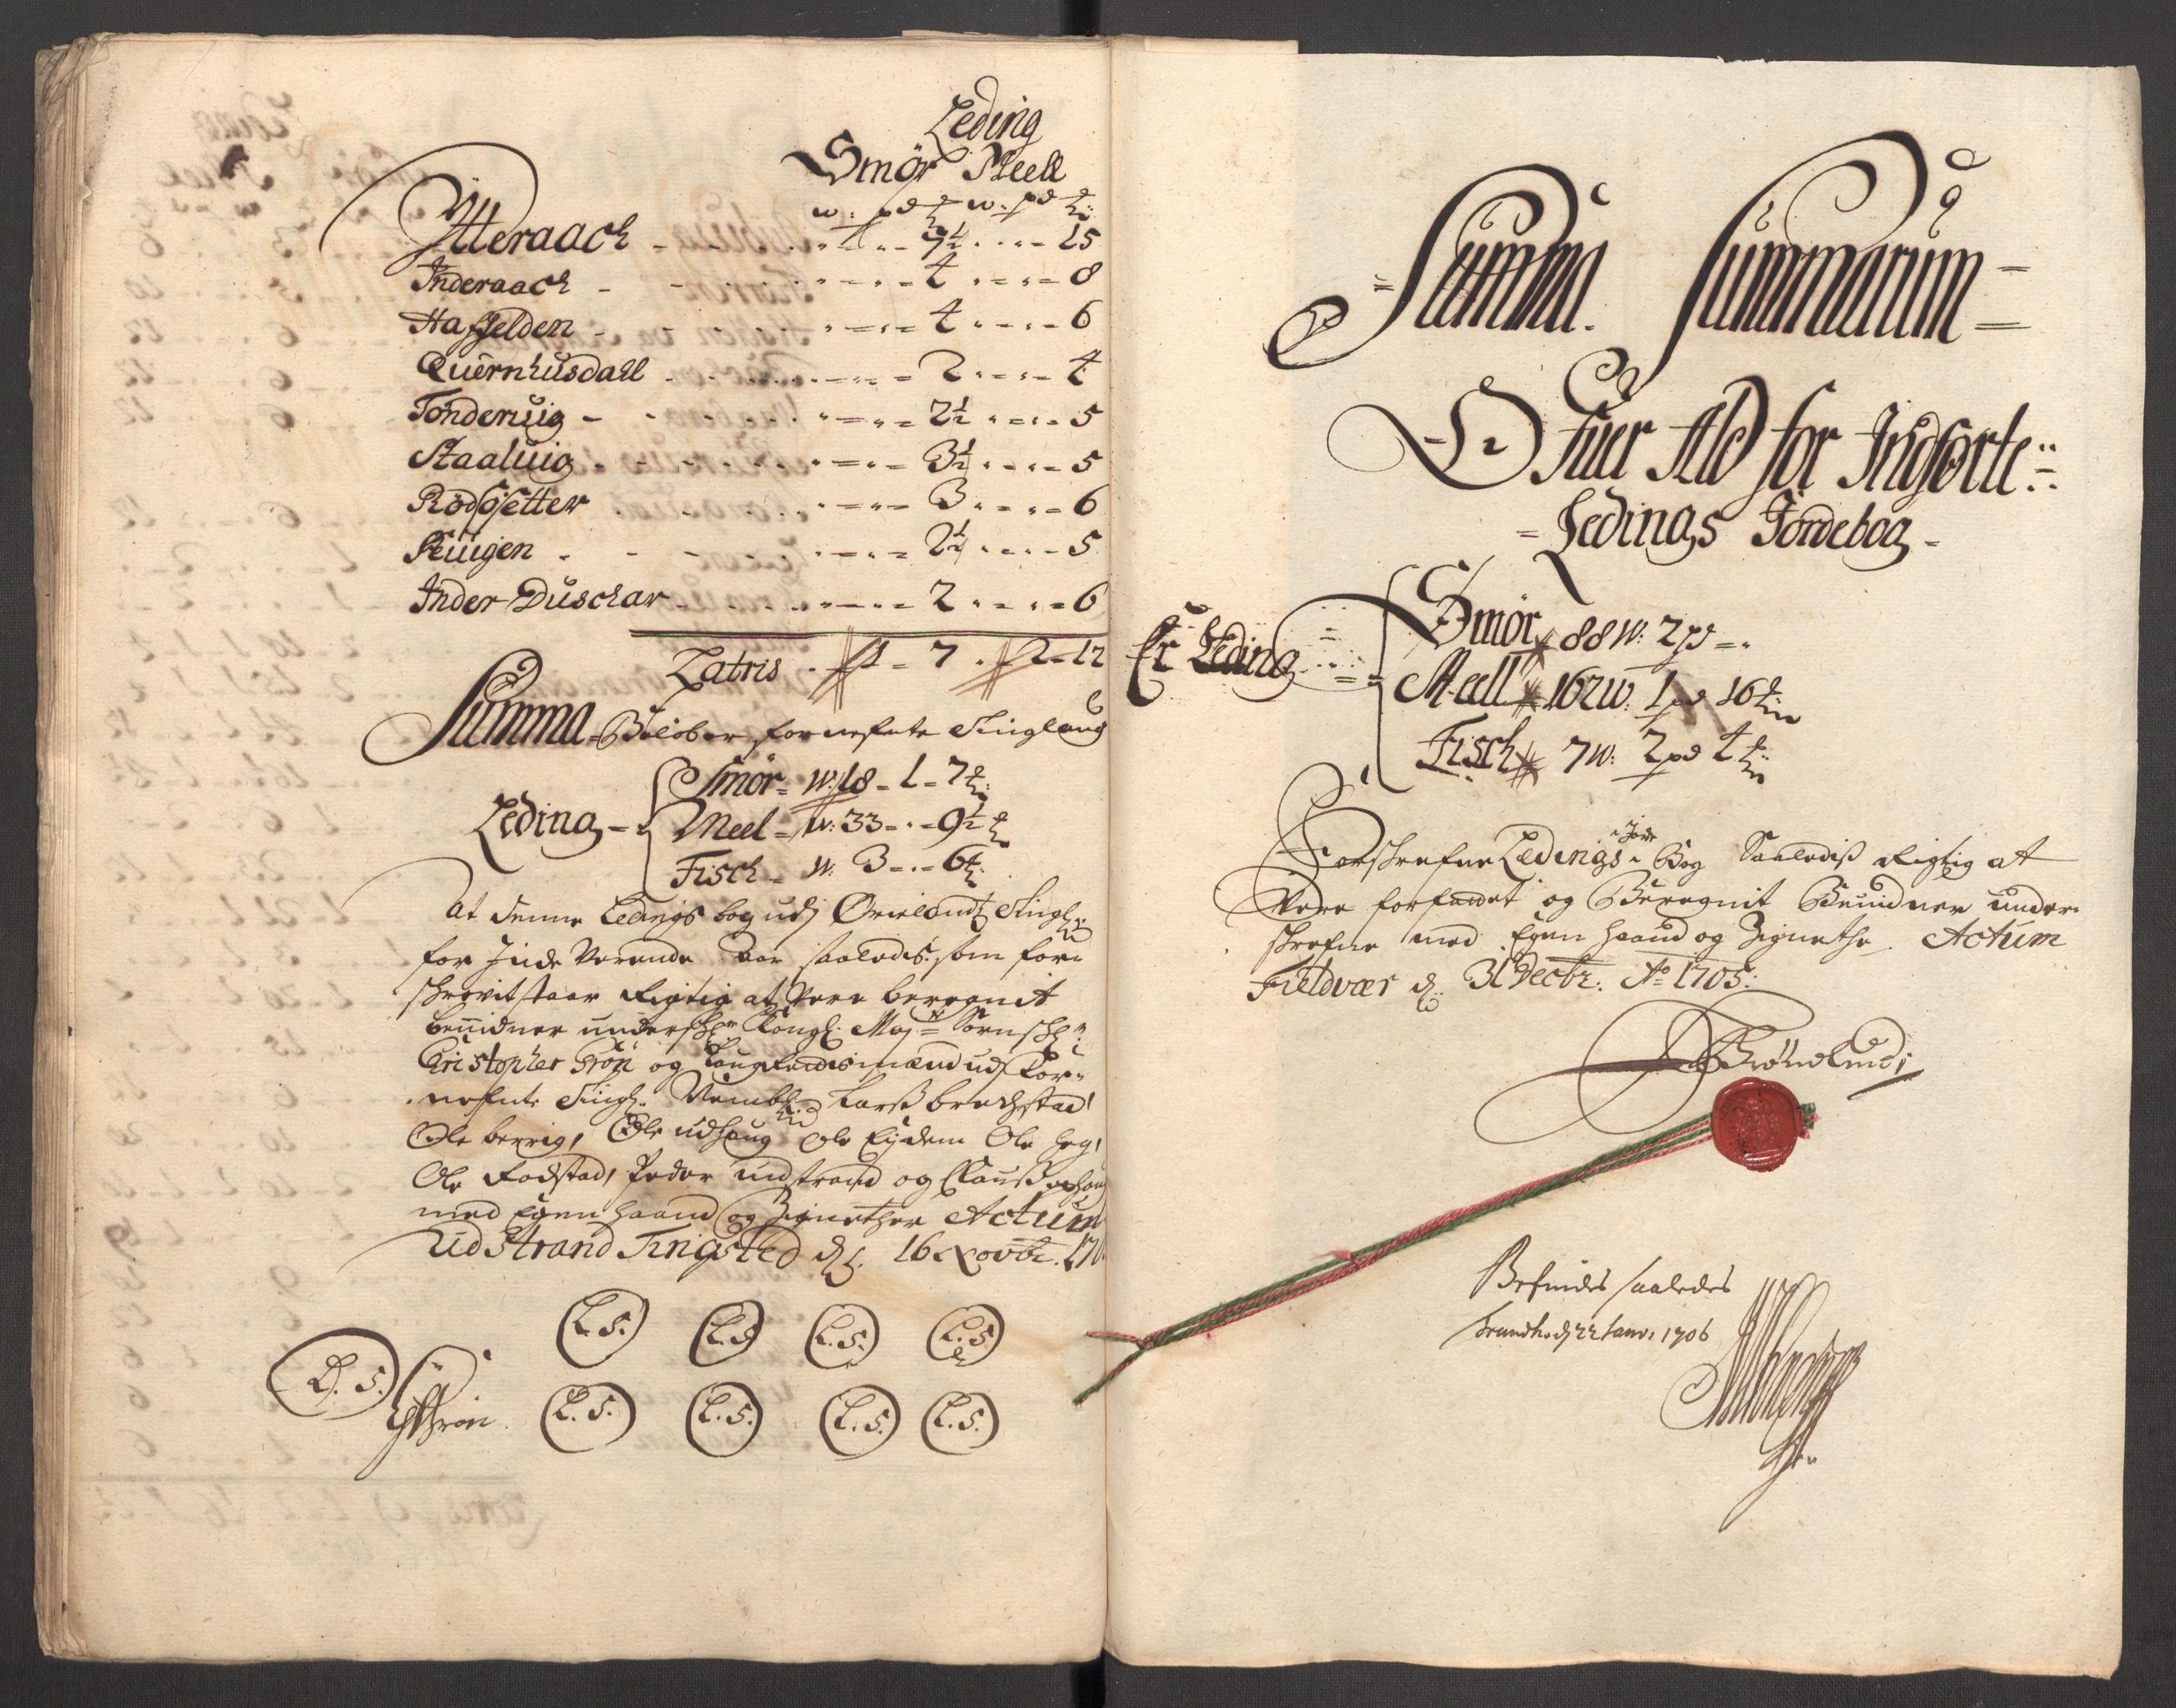 Leding
Smör Meell
w: pd ℔ w: pd ℔:
Ytteraach - - 1 - - 9½ - - - 15
Inderaach - - - - 1 - - - 8
Hafselden - - - - 1 - - - 6
Quernhusdall - - - - 2 - - - 4
Tönderuig - - - - 2½ - - - 5
Staaluig - - - - 3½ - - - 5
Rödsetter - - - - 3 - - - 6
- - - - 2½ - - - 5
Inder Duschar - - - - 2 - - - 6
Latris - 1 - 7 - 2 - 12
Summa Beløber for nefnte Tinglaug
Leding - Smör - w: 18 - 1 - 7 ℔:
Meel - w: 33 - - 9½ ℔
Fisch - w. 3 - - 6 ℔:
At denne Ledings bog udj Ørelandtz Tingl:
for Inde Verende Aar saaledis som for-
skrevit staar Rigtig at Vere beregnit
beuidner underskr: Kongl: May: Sornskr:
Christopher Frön og Laugrettismænd udj For-
nefnte Tingl: Nembl: Larss brechstad,
Ole berrig, Ole udhaug Ole Eydem Ole
Ole Fodstad, Peder udstrand og Clauss
med Egen haand og Zignether Actum
Udstrand Tingsted d: 16 Novbr: 170
L. S. L. S. L. S. L. S.
L. S. L. S. L. S. L. S. L. S.
Summa Summarum
Ofuer Ald for Indförte
Ledings Jordebog
Er Leding
Smör 88 w: 2 pd - -
Meell 162 w: 1 pd 16 ℔
Fisch 7 w: 2 pd 1 ℔
Forskrefne Ledings Jorde Bog Saaledis Rigtig at
Vere forfattet og Beregnit Beuidner under-
skrefne med Egen haand og Zignethe. Actum
Fieldvær d: 31 Decbr: Ao 1705:
Befindes saaledes
Trundh: d 22 Janv: 1706